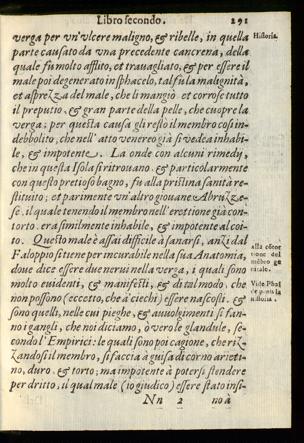 Libro secondo. 291
verga per vn'vlcere maligno, & ribelle, in quella
Historia.
parte causato da vna precedente cancrena, della
quale fu molto afflito, et trauagliato, & per essere il
male poi degenerato in sphacelo, tal fu la malignità,
et asprezza del male, che li mangiò et corrose tutto
il preputio, & gran parte della pelle, che cuopre la
verga; per questa causa gli restò il membro così in-
debbolito, che nell'atto venereo già si vedea inhabi-
le, & impotente. La onde con alcuni rimedij,
che in questa Isola si ritrouano & particolarmente
con questo pretioso bagno, fu alla pristina sanità re-
stituito; et parimente vn'altro giouane Abruzze-
se, il quale tenendo il membro nell'erettione già con-
torto, era similmente inhabile, & impotente al coi-
to. Questo male è assai difficile à sanarsi, anzi dal
Faloppio si tiene per incurabile nella sua Anatomia,
doue dice essere due nerui nella verga, i quali sono
molto euidenti, & manifesti, & di tal modo, che
non possono (eccetto, che a' ciechi) essere nascosti, &
sono quelli, nelle cui pieghe, & auuolgimenti si fan-
no i gangli, che noi diciamo, ò vero le glandule, se-
condo l'Empirici: le quali son poi cagione, che riz-
zandosi il membro, si faccia à guisa di corno arieti-
no, duro, & torto; ma impotente à potersi stendere
per dritto; il qual male (io giudico) essere stato insi-
Nn 2 no à